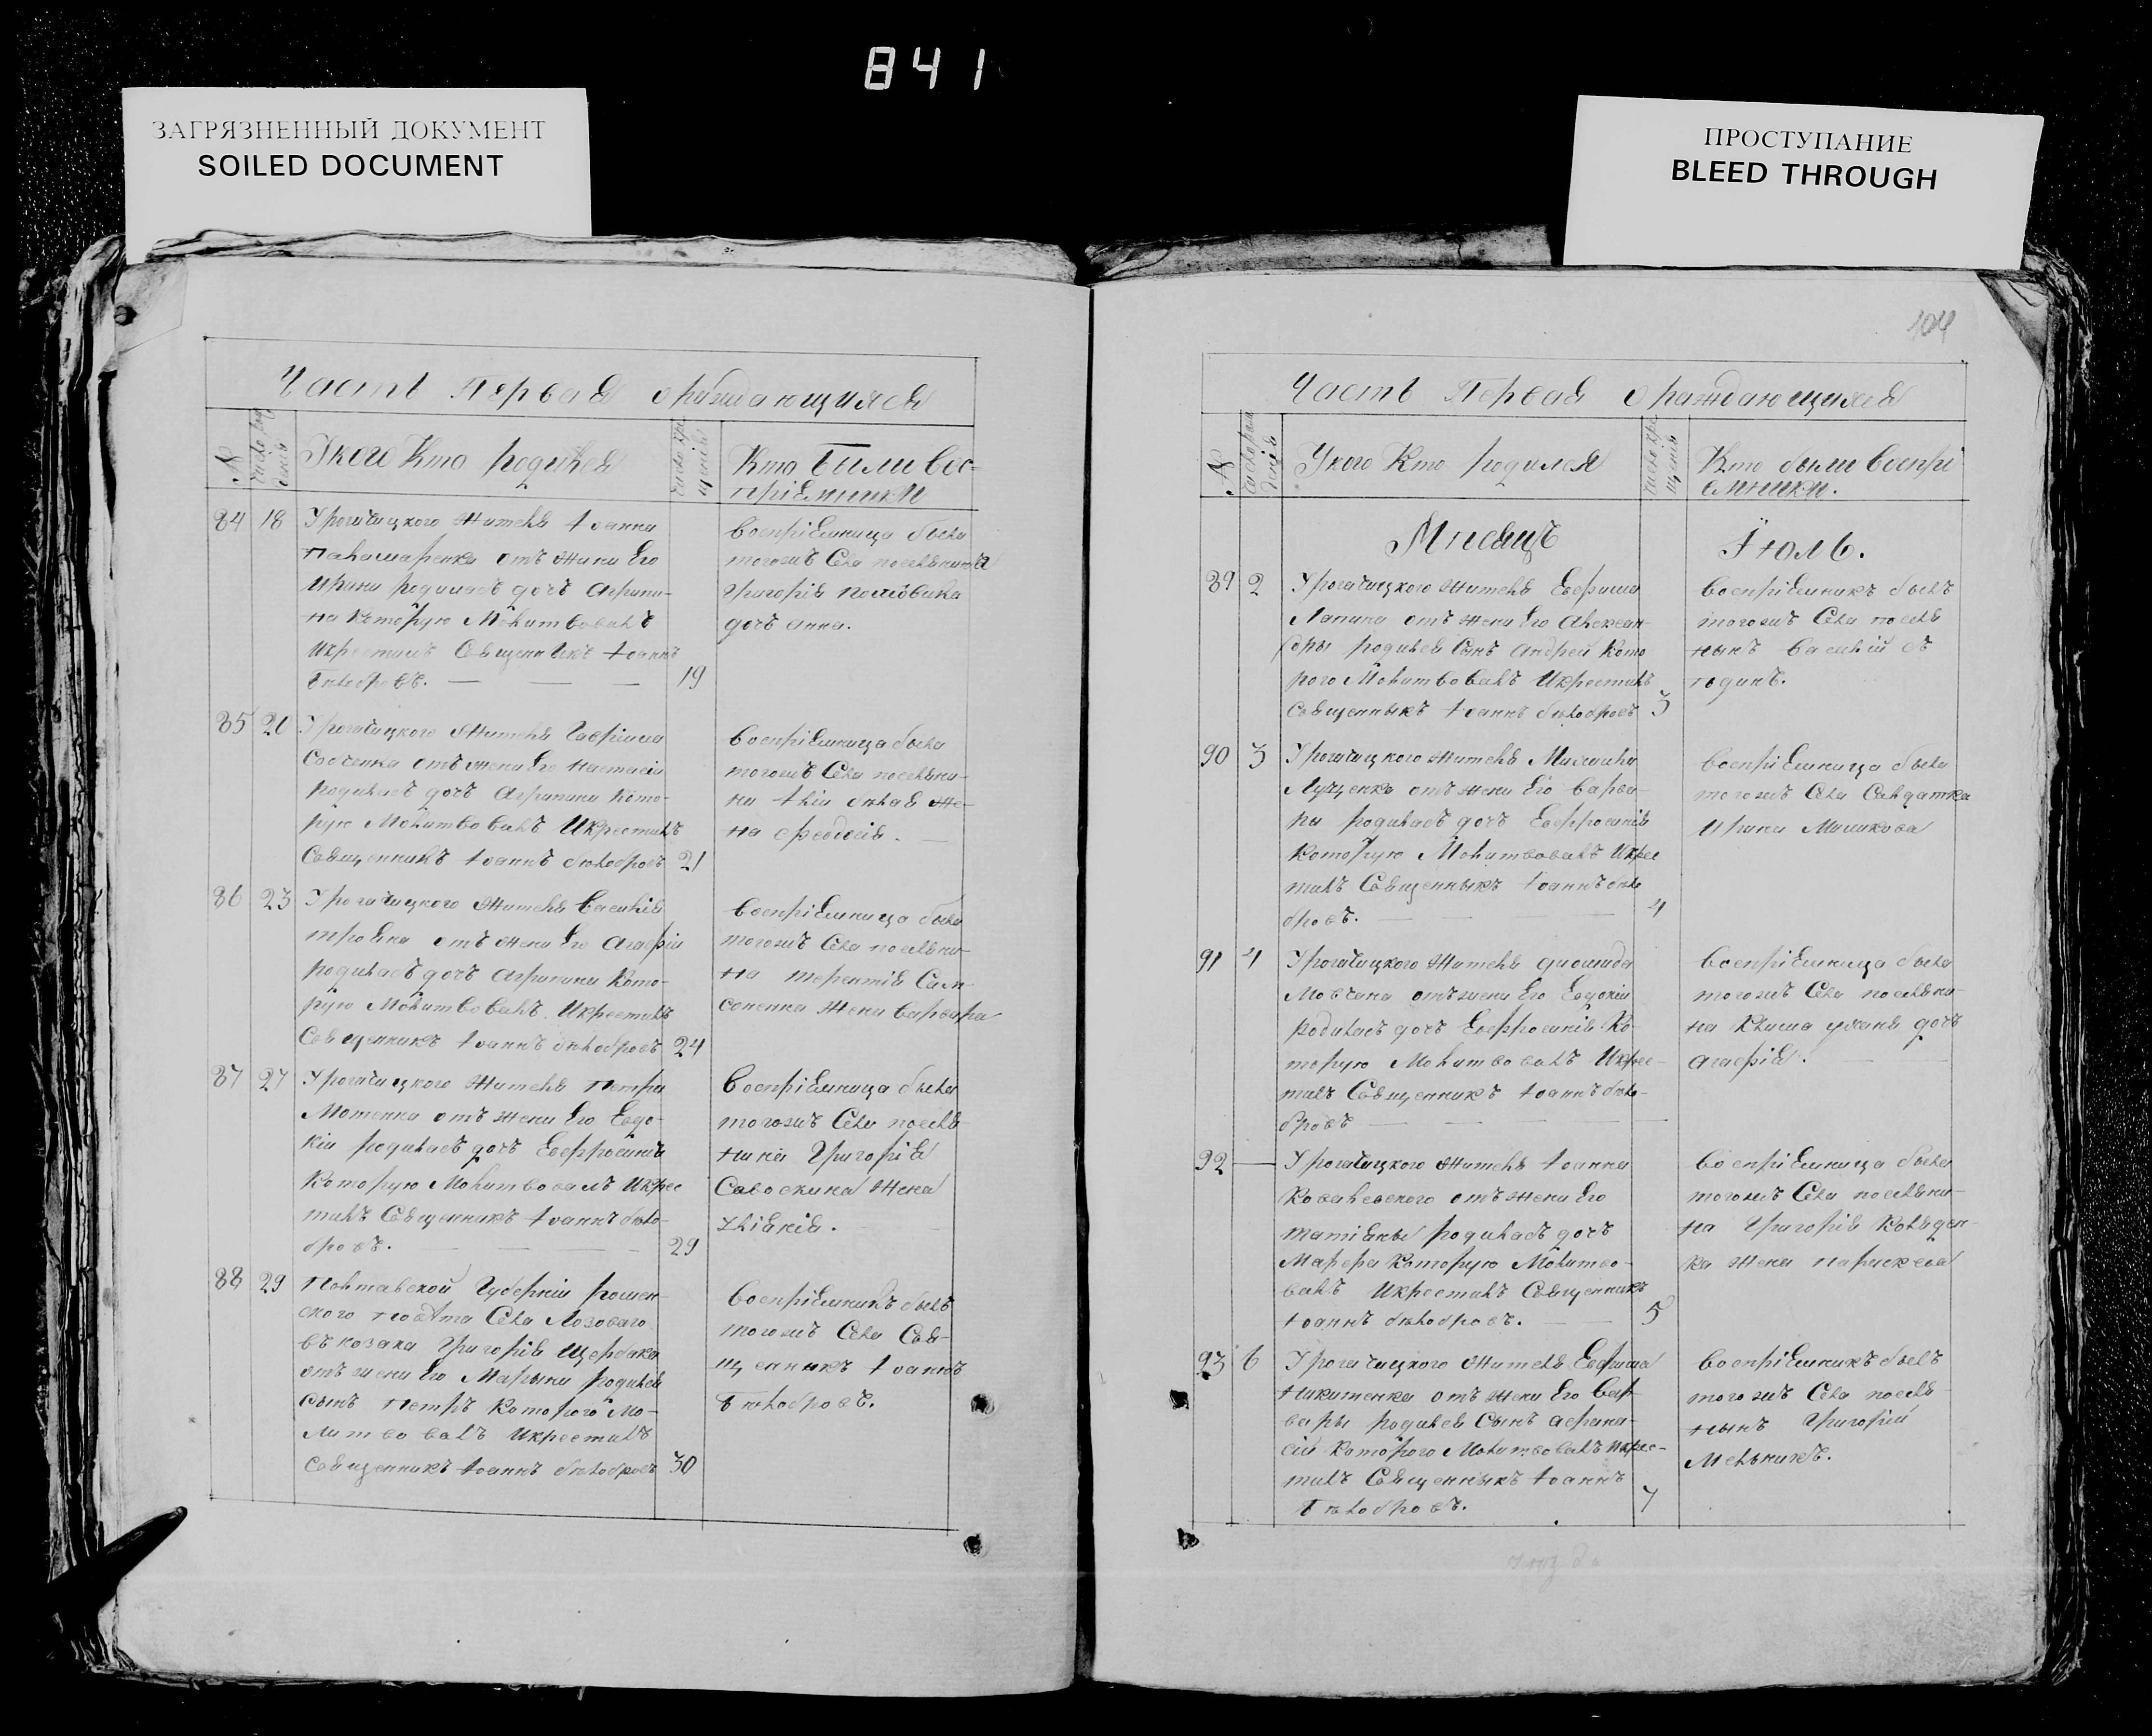 841
ЗАГРЯЗНЕННЫЙ ДОКУМЕНТ
SOILED DOCUMENT
ПРОСТУПАНИЕ
BLEED THROUGH
Часть Первая о раждающихся
№
Число рож
денія
Укого Кто родился
Число кре
щенія
Кто Были вос-
пріемники
84 18 Урогачицкого жителя Іоанна
отъ жены Его
Ирины родилась дочь Агрипи-
на Которую Молитвовалъ
Икрестилъ Священникъ Іоаннъ
Бѣлобровъ. 19
воспріемница была
тогожъ Села поселянина
Григорія
дочь анна.
85 20 Урогачицкого Жителя Гавріила
Собченка отъ жены Его Настасіи
родилась дочь Агрипина Кото-
рую Молитвовалъ Икрестилъ
Священникъ Іоаннъ бѣлобровъ 21
воспріемница была
тогожъ Села поселяни-
на Иліи бѣлая же-
на Феодосія.
86 23 Урогачицкого Жителя Василія
трояна отъ жены Его Агафіи
родилась дочь Агрипина Кото-
рую Молитвовалъ Икрестилъ
Священникъ Іоаннъ бѣлобровъ 24
воспріемница была
тогожъ Села поселяни-
на терентія Сам-
соненка жена варвара
87 27 Урогачицкого Жителя Петра
Мотенка отъ жены Его Евдо-
кіи родилась дочь Евфросинія
Которую Молитвовалъ Икрес
тилъ Священникъ Іоаннъ бѣло-
бровъ. 29
Воспріемница была
тогожъ Села поселя-
нина Григорія
Савоскина жена
Уліянія.
88 29 Полтавской Губерніи ромен-
ского повѣта Села Лозоваго
въ козака Григорія Щербака
отъ жены Его Марыны родился
сынъ Петръ Которого Мо-
литвовалъ Икрестилъ
Священникъ Іоаннъ бѣлобровъ 30
Воспріемникъ былъ
тогожъ Села Свя-
щенникъ Іоаннъ
Бѣлобровъ.
104
Часть Первая о раждающихся
№
Число рож
денія
Укого Кто родился
Число кре
щенія
Кто были воспрі
емники.
Мѣсяцъ Іюль.
89 2 Урогачицкого жителя Евфима
Лапина отъ жены Его Алексан-
дры родился Сынъ Андрей Кото
рого Молитвовалъ Икрестилъ
Священныкъ Іоаннъ бѣлобровъ 3
воспріемникъ былъ
тогожъ Села поселя
нынъ Василій

90 3 Урогачицкого жителя Михаила
Луценка отъ жены Его варва-
ры родилась дочь Евфросинія
Которую Молитвовалъ Икрес
тилъ Священныкъ Іоаннъ бѣло
бровъ. 4
воспріемница была
тогожъ Села Салдатка
Ирина Машкова
91 4 Урогачицкого Жителя диомида
Мовчана отъ жены Его Евдокіи
родилась дочь Евфросинія Ко-
торую Молитвовалъ Икрес-
тилъ Священникъ Іоаннъ бѣло-
бровъ
воспріемница была
тогожъ Села поселяни-
на дочь
Агафія.
92 — Урогачицкого Жителя Іоанна
Ковалевского отъ жены Его
татіяны родилась дочь
Марфа Которую Молитво-
валъ Икрестилъ Священникъ
Іоаннъ бѣлобровъ. 5
воспріемница была
тогожъ Села поселяни-
на Григорія
ка жена параскева
93 6 Урогачицкого Жителя Евфима
Никитенка отъ жены Его Вар-
вары родился Сынъ Афана-
сій Которого Молитвовалъ Икрес-
тилъ Священныкъ Іоаннъ
Бѣлобровъ. 7
воспріемникъ былъ
тогожъ Села поселя-
нынъ Григорій
Мельникъ.